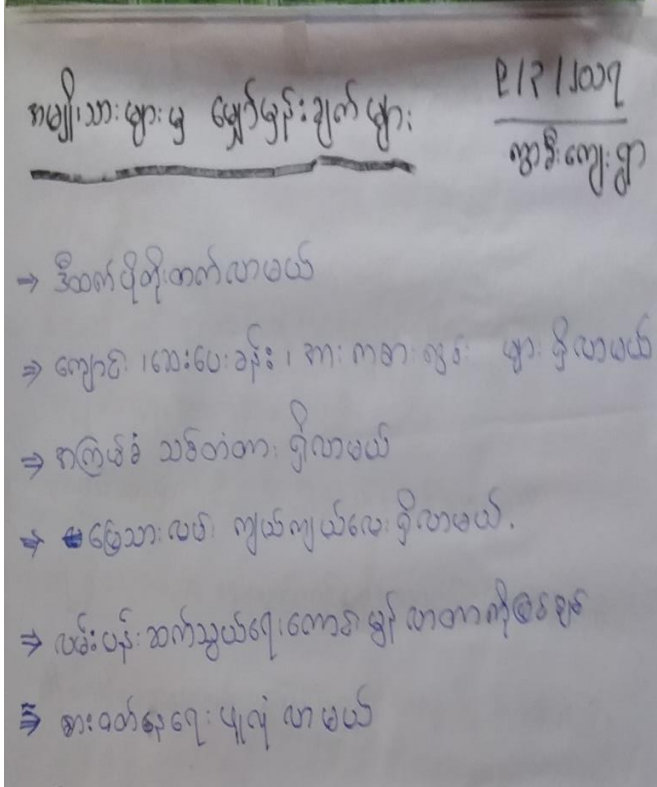 အမျိုးသားများမှ မျှော်မှန်းချက်များ
၉/၃/၂၀၁၇
ကျေးရွာ
⇒ ဒီထက်ပိုတိုးတက်လာမယ်
⇒ ကျောင်း ၊ဆေးပေးခန်း ၊ အားကစားကွင်း များ ရှိလာမယ်
⇒ အကြမ်ခံ သစ်တံတား ရှိလာမယ်
⇒ မြေသားလမ်း ကျယ်ကျယ်လေး ရှိလာမယ်.
⇒ လမ်းပန်းဆက်သွယ်ရေးကောင်းမွန်လာတာကိုမြင်ချင်
⇒ စားဝတ်နေရေး ပူလုံ လာမယ်